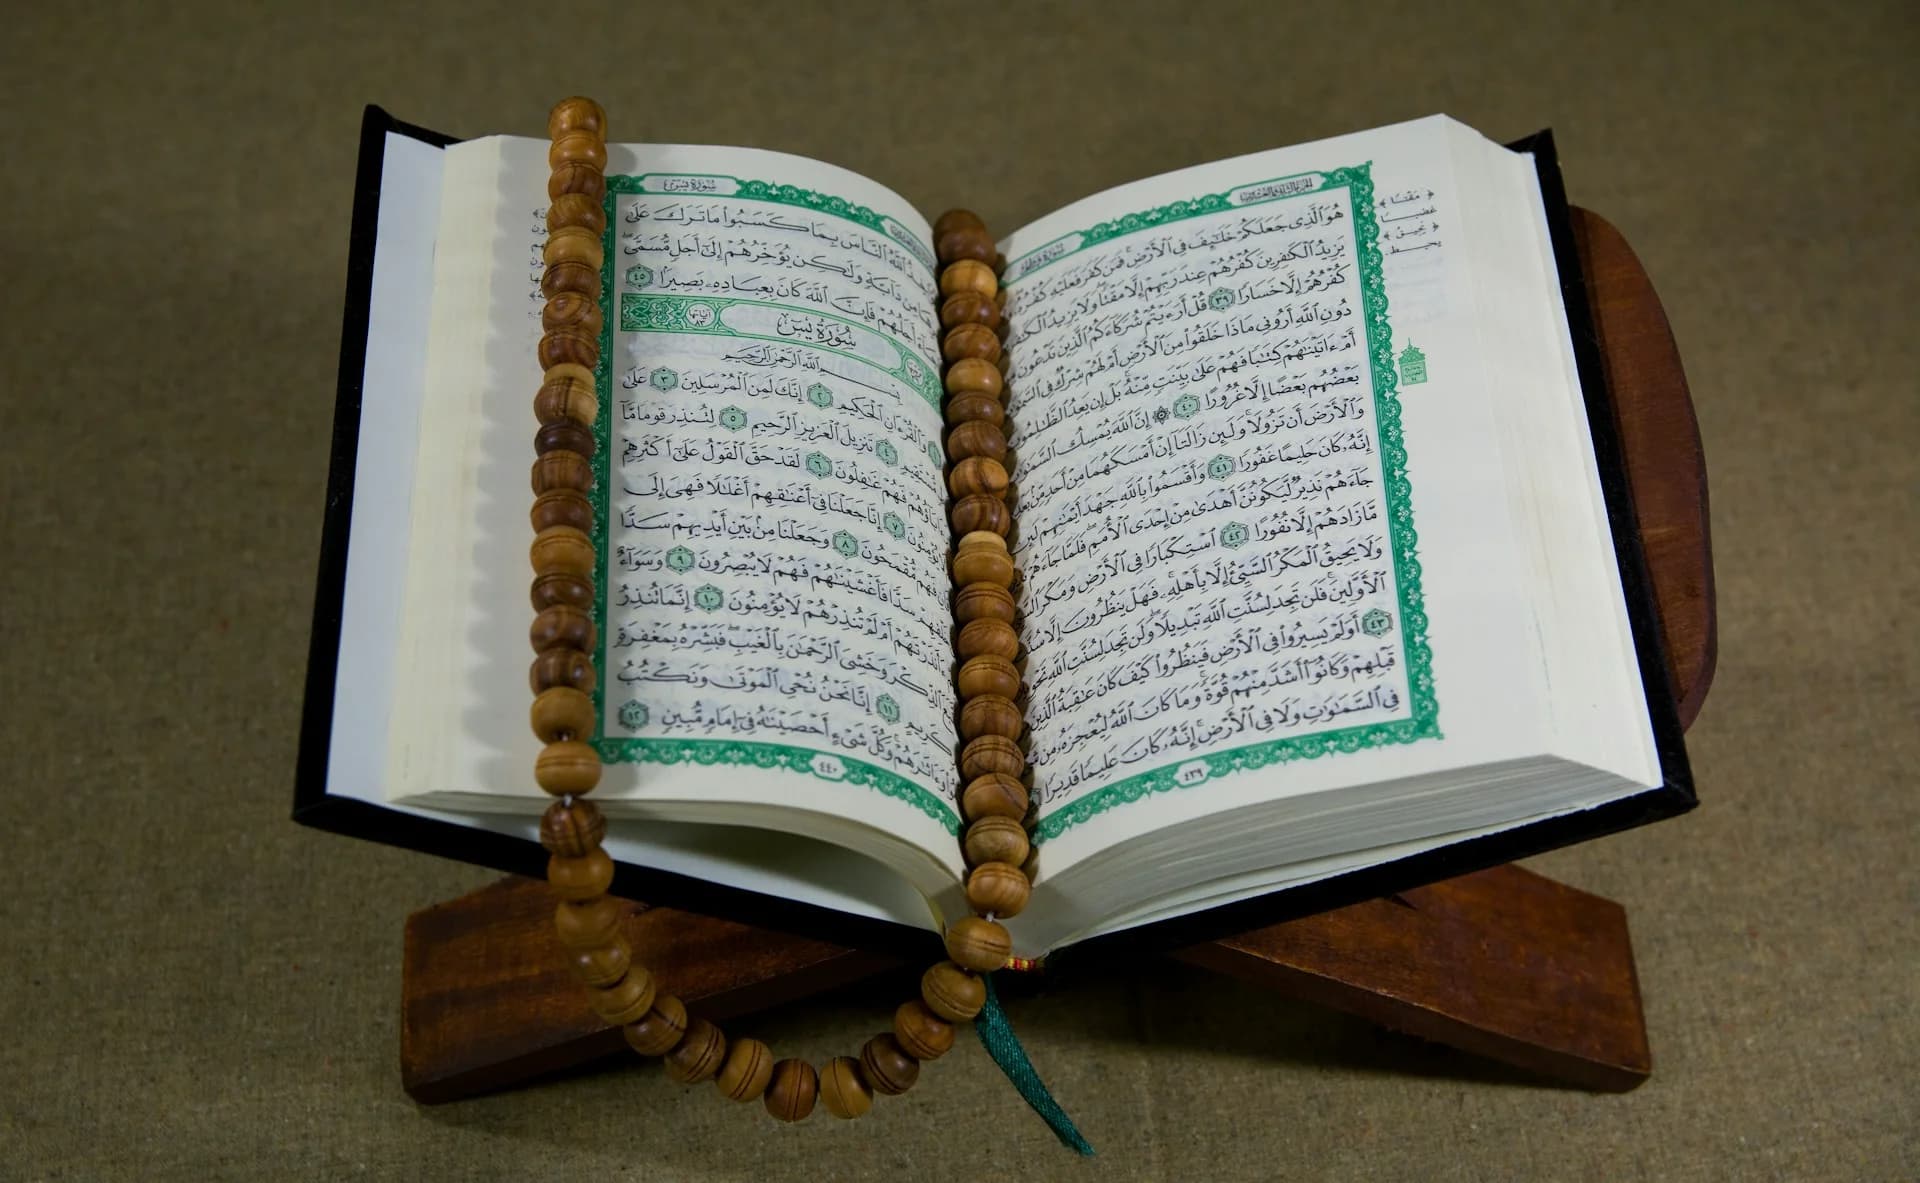 الجزء الثاني والعشرون
سُورَةُ فَاطِرٍ
هُوَ ٱلَّذِى جَعَلَكُمْ خَلَٰٓئِفَ فِى ٱلْأَرْضِ ۚ فَمَن كَفَرَ فَعَلَيْهِ كُفْرُهُۥ
يَزِيدُ ٱلْكَٰفِرِينَ كُفْرُهُمْ عِندَ رَبِّهِمْ إِلَّا مَقْتًا ۖ وَلَا يَزِيدُ ٱلْكَٰفِرِينَ
كُفْرُهُمْ إِلَّا خَسَارًا ٣٩ قُلْ أَرَءَيْتُمْ شُرَكَآءَكُمُ ٱلَّذِينَ تَدْعُونَ
دُونِ ٱللَّهِ أَرُونِى مَاذَا خَلَقُوا۟ مِنَ ٱلْأَرْضِ أَمْ لَهُمْ شِرْكٌ فِى
أَمْ ءَاتَيْنَٰهُمْ كِتَٰبًا فَهُمْ عَلَىٰ بَيِّنَتٍ مِّنْهُ ۚ بَلْ إِن يَعِدُ ٱلظَّٰلِمُونَ
بَعْضُهُم بَعْضًا إِلَّا غُرُورًا ٤٠ ۞ إِنَّ ٱللَّهَ يُمْسِكُ
وَٱلْأَرْضَ أَن تَزُولَا ۚ وَلَئِن زَالَتَآ إِنْ أَمْسَكَهُمَا مِنْ أَحَدٍ مِّنۢ
إِنَّهُۥ كَانَ حَلِيمًا غَفُورًا ٤١ وَأَقْسَمُوا۟ بِٱللَّهِ جَهْدَ أَيْمَٰنِهِمْ لَئِن
جَآءَهُمْ نَذِيرٌ لَّيَكُونُنَّ أَهْدَىٰ مِنْ إِحْدَى ٱلْأُمَمِ ۖ فَلَمَّا جَآءَهُمْ
مَّا زَادَهُمْ إِلَّا نُفُورًا ٤٢ ٱسْتِكْبَارًا فِى ٱلْأَرْضِ وَمَكْرَ
وَلَا يَحِيقُ ٱلْمَكْرُ ٱلسَّيِّئُ إِلَّا بِأَهْلِهِۦ ۚ فَهَلْ يَنظُرُونَ إِلَّا
ٱلْأَوَّلِينَ ۚ فَلَن تَجِدَ لِسُنَّتِ ٱللَّهِ تَبْدِيلًا ۖ وَلَن تَجِدَ لِسُنَّتِ ٱللَّهِ
٤٣ أَوَلَمْ يَسِيرُوا۟ فِى ٱلْأَرْضِ فَيَنظُرُوا۟ كَيْفَ كَانَ عَٰقِبَةُ ٱلَّذِينَ
قَبْلِهِمْ وَكَانُوٓا۟ أَشَدَّ مِنْهُمْ قُوَّةً ۚ وَمَا كَانَ ٱللَّهُ لِيُعْجِزَهُۥ مِن
فِى ٱلسَّمَٰوَٰتِ وَلَا فِى ٱلْأَرْضِ ۚ إِنَّهُۥ كَانَ عَلِيمًا قَدِيرًا
٤٣٩
﴿ مَقْتًا ﴾
غضبا
﴿ يَحِيقُ ﴾
يحيط
سُورَةُ يسٓ
ٱللَّهُ ٱلنَّاسَ بِمَا كَسَبُوا۟ مَا تَرَكَ عَلَىٰ
مِن دَآبَّةٍ وَلَٰكِن يُؤَخِّرُهُمْ إِلَىٰٓ أَجَلٍ مُّسَمًّى ۖ
أَجَلُهُمْ فَإِنَّ ٱللَّهَ كَانَ بِعِبَادِهِۦ بَصِيرًۢا ٤٥
سُورَةُ يسٓ
آياتها ٨٣
بِسْمِ ٱللَّهِ ٱلرَّحْمَٰنِ ٱلرَّحِيمِ
وَٱلْقُرْءَانِ ٱلْحَكِيمِ ٢ إِنَّكَ لَمِنَ ٱلْمُرْسَلِينَ ٣ عَلَىٰ
مُّسْتَقِيمٍ ٤ تَنزِيلَ ٱلْعَزِيزِ ٱلرَّحِيمِ ٥ لِتُنذِرَ قَوْمًا مَّآ
ءَابَآؤُهُمْ فَهُمْ غَٰفِلُونَ ٦ لَقَدْ حَقَّ ٱلْقَوْلُ عَلَىٰٓ أَكْثَرِهِمْ
يُؤْمِنُونَ ٧ إِنَّا جَعَلْنَا فِىٓ أَعْنَٰقِهِمْ أَغْلَٰلًا فَهِىَ إِلَى
فَهُم مُّقْمَحُونَ ٨ وَجَعَلْنَا مِنۢ بَيْنِ أَيْدِيهِمْ سَدًّا
خَلْفِهِمْ سَدًّا فَأَغْشَيْنَٰهُمْ فَهُمْ لَا يُبْصِرُونَ ٩ وَسَوَآءٌ
ءَأَنذَرْتَهُمْ أَمْ لَمْ تُنذِرْهُمْ لَا يُؤْمِنُونَ ١٠ إِنَّمَا تُنذِرُ
ٱلذِّكْرَ وَخَشِىَ ٱلرَّحْمَٰنَ بِٱلْغَيْبِ ۖ فَبَشِّرْهُ بِمَغْفِرَةٍ
كَرِيمٍ ١١ إِنَّا نَحْنُ نُحْىِ ٱلْمَوْتَىٰ وَنَكْتُبُ
وَءَاثَٰرَهُمْ ۚ وَكُلَّ شَىْءٍ أَحْصَيْنَٰهُ فِىٓ إِمَامٍ مُّبِينٍ ١٢
٤٤٠